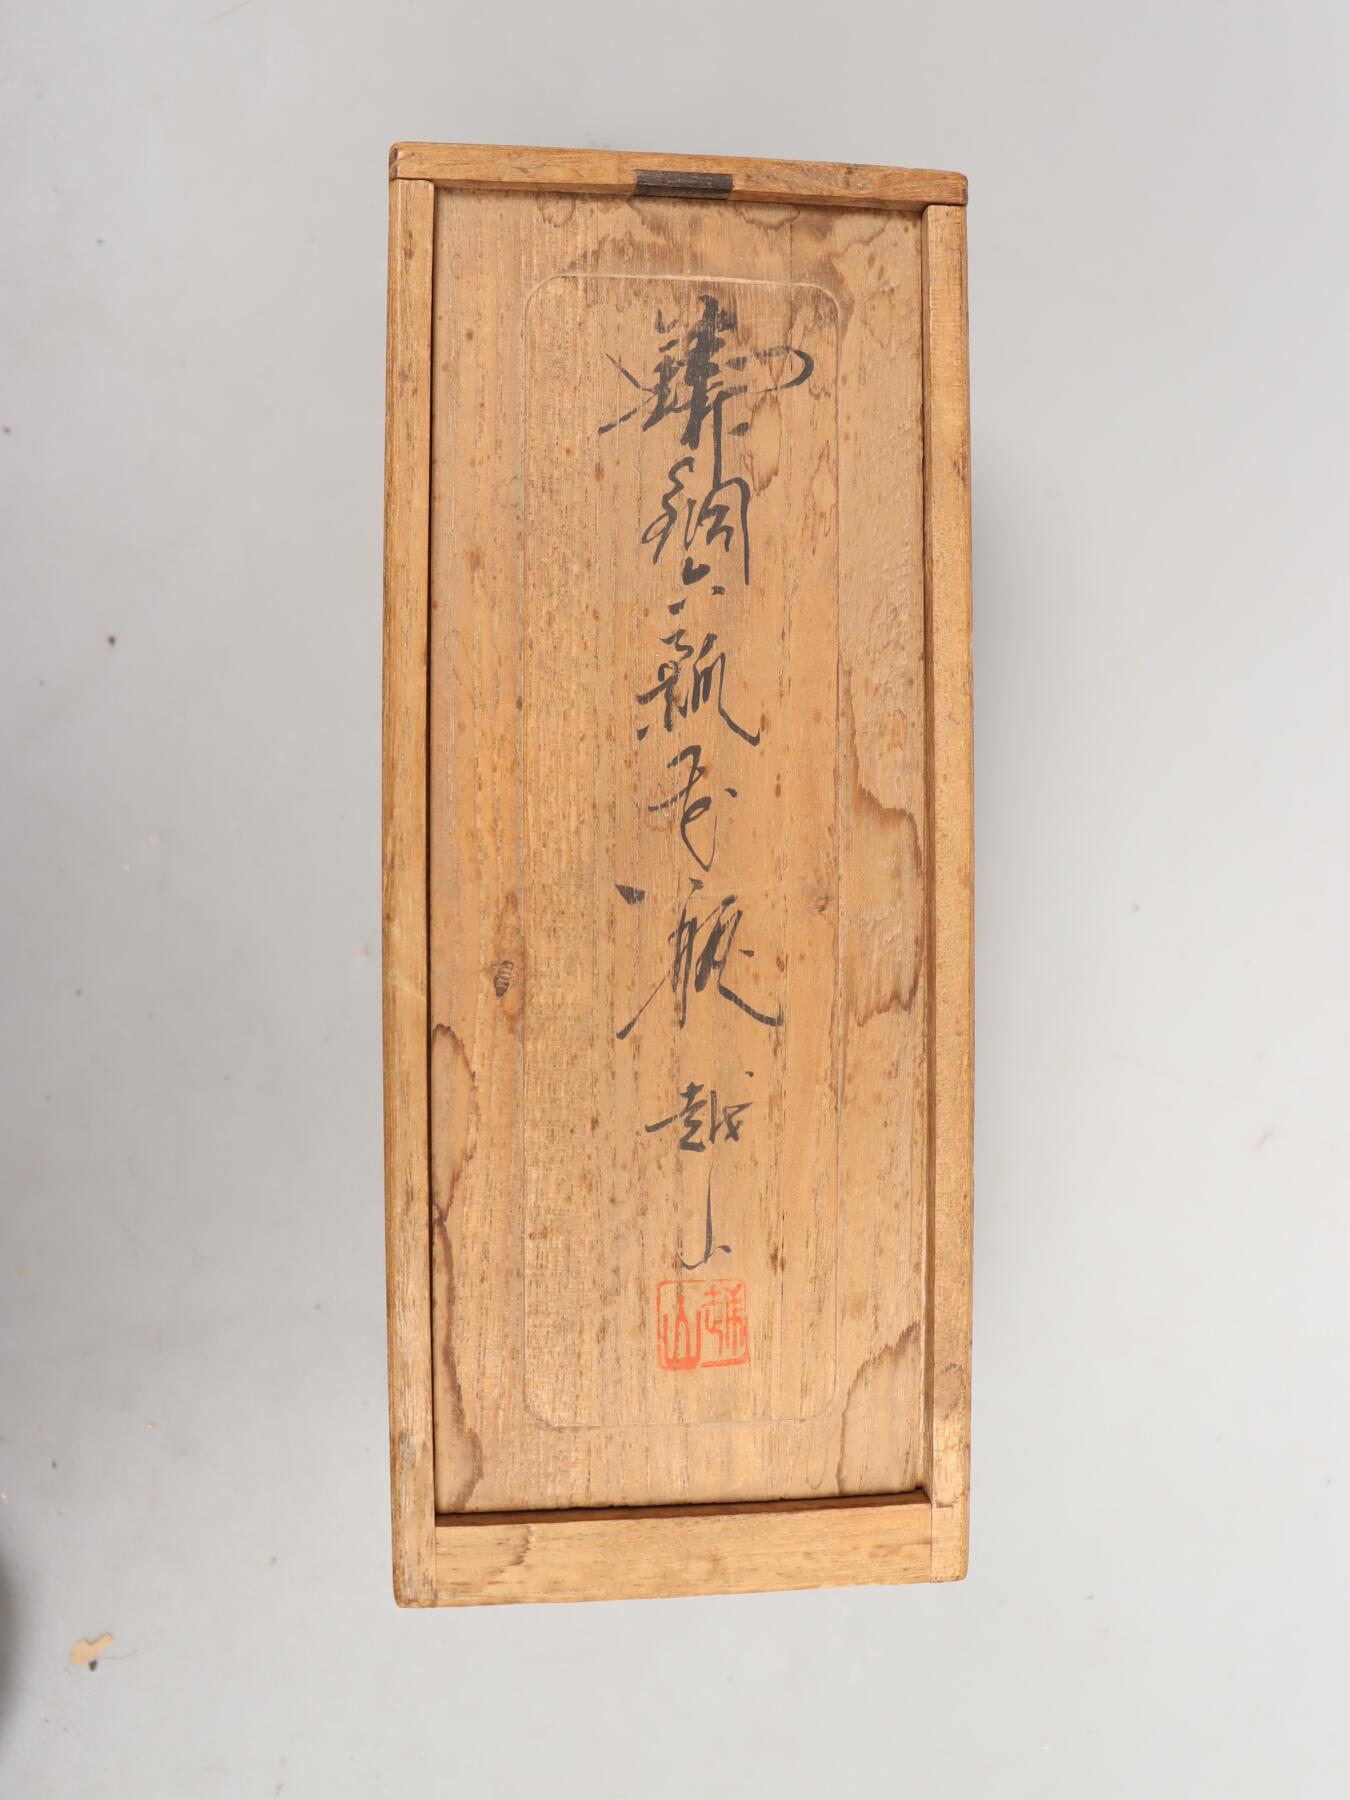 鑄銅六瓢花瓶 越山
越山